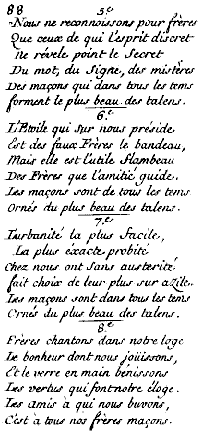 88
5.e
Nous ne reconnoissons pour frères
Que ceux de qui l'esprit discret
Ne révele point le Secret
Du mot, du Signe, des mistères
Des maçons qui dans tous les tems
forment le plus beau des talens.
6.e
L'Etoile qui sur nous préside
Est des faux Frères le bandeau,
Mais elle est l'utile flambeau
Des Frères que l'amitié guide.
Les maçons sont de tous les tems
Ornés du plus beau des talens.
7.e
L'urbanité la plus facile,
La plus éxacte probité
Chez nous ont Sans austerité
fait choix de leur plus sur azile.
Les maçons sont dans tous les tems
Ornés du plus beau des talens.
8.e
Frères chantons dans notre loge
Le bonheur dont nous joüissons,
Et le verre en main bénissons
Les vertus qui font notre éloge.
Les amis à qui nous buvons,
C'est à tous nos frères maçons.